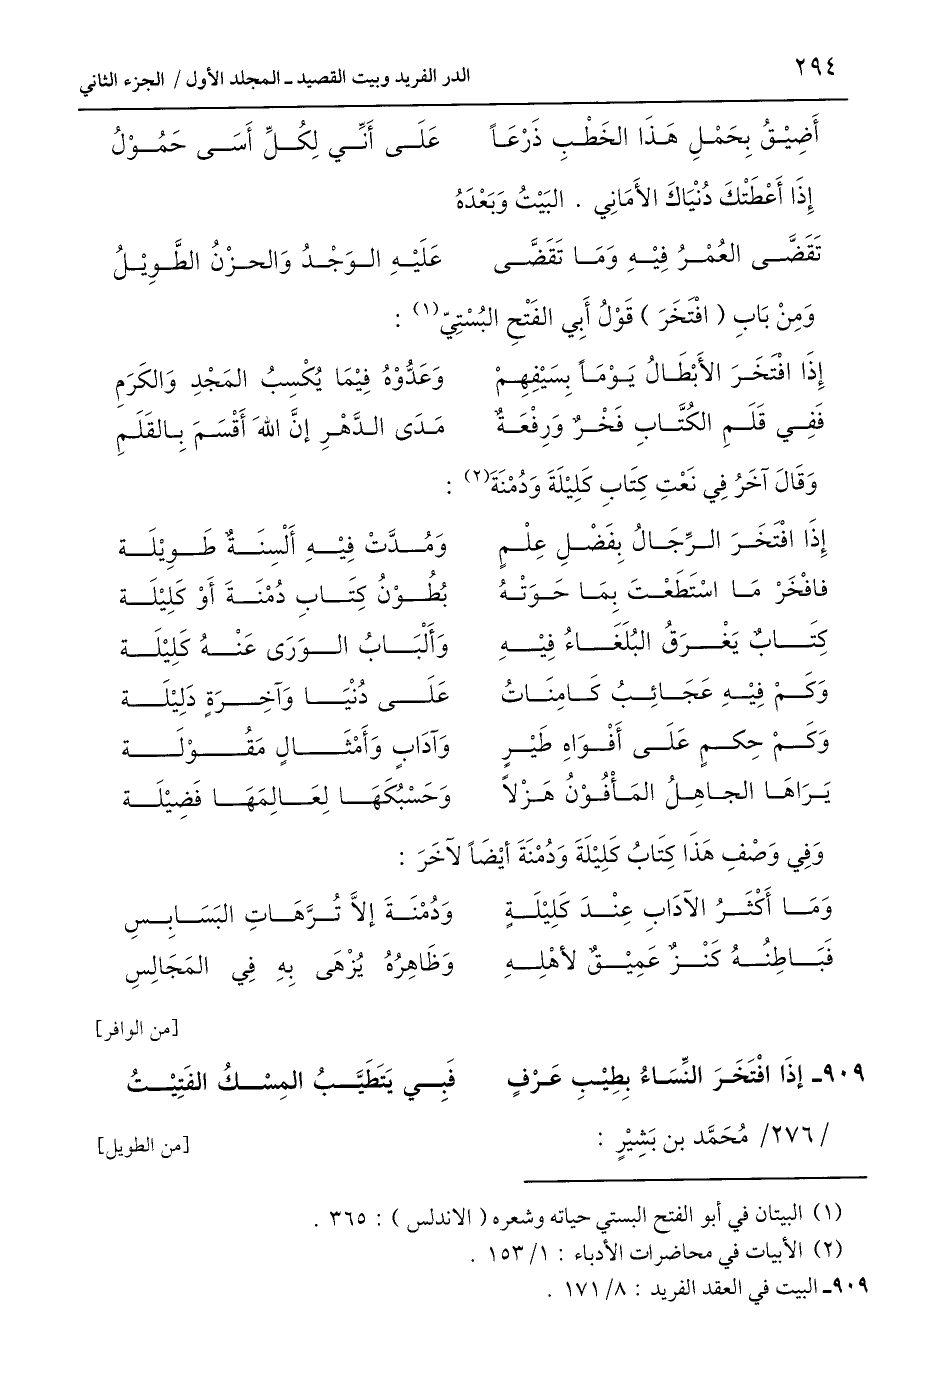 ٢٩٤
الدر الفريد وبيت القصيد ـ المجلد الأول / الجزء الثاني
أَضِيْقُ بِحَمْلِ هَذَا الخَطْبِ ذَرْعَاً عَلَى أَنَّي لِكُلِّ أَسَى حَمُوْلُ
إِذَا أَعْطَتْكَ دُنْيَاكَ الأَمَانِي . البَيْتُ وَبَعْدَهُ
تَقَضَّى العُمْرُ فِيْهِ وَمَا تَقَضَّى عَلَيْهِ الوَجْدُ وَالحزْنُ الطَّوِيْلُ
وَمِنْ بَابِ ( افْتَخَرَ ) قَوْلُ أَبِي الفَتْحِ البُسْتِيّ(١) :
إِذَا افْتَخَرَ الأَبْطَالُ يَوْمَاً بِسَيْفِهِمْ وَعَدُّوْهُ فِيْمَا يُكْسِبُ المَجْدِ وَالكَرَمِ
فَفِي قَلَمِ الكُتَّابِ فَخْرٌ وَرِفْعَةٌ مَدَى الدَّهْرِ إِنَّ اللهَ أَقْسَمَ بِالقَلَمِ
وَقَالَ آخَرُ فِي نَعْتِ كِتَابِ كَلِيْلَةَ وَدُمْنَةَ(٢) :
إِذَا افْتَخَرَ الرِّجَالُ بِفَضْلِ عِلْمٍ وَمُدَّتْ فِيْهِ أَلْسِنَةٌ طَوِيْلَة
فَافْخَرْ مَا اسْتَطَعْتَ بِمَا حَوَتْهُ بُطُوْنُ كِتَابِ دُمْنَةَ أَوْ كَلِيْلَة
كِتَابٌ يَغْرَقُ البُلَغَاءُ فِيْهِ وَأَلْبَابُ الوَرَى عَنْهُ كَلِيْلَة
وَكَمْ فِيْهِ عَجَائِبُ كَامِنَاتُ عَلَى دُنْيَا وَآخِرَةٍ دَلِيْلَة
وَكَمْ حِكَمٍ عَلَى أَفْوَاهِ طَيْرٍ وَآدَابٍ وَأَمْثَالٍ مَقُوْلَة
يَرَاهَا الجاهِلُ المَأْفُوْنُ هَزْلاً وَحَسْبُكَهَا لِعَالِمَهَا فَضِيْلَة
وَفِي وَصْفِ هَذَا كِتَابُ كَلِيْلَةَ وَدُمْنَةَ أَيْضَاً لآخَرَ :
وَمَا أَكْثَرُ الآدَابِ عِنْدَ كَلِيْلَةٍ وَدُمْنَةَ إِلاَّ تُرَّهَاتِ البَسَابِسِ
فَبَاطِنُهُ كَنْزٌ عَمِيْقٌ لأَهْلِهِ وَظَاهِرُهُ يُزْهَى بِهِ فِي المَجَالِسِ
[من الوافر]
٩٠٩ـ إِذَا افْتَخَرَ النِّسَاءُ بِطِيْبِ عَرْفٍ فَبِي يَتَطَيَّبُ المِسْكُ الفَتِيْتُ
/ ٢٧٦/ مُحَمَّد بن بَشِيْرٍ :
[من الطويل]
(١) البيتان في أبو الفتح البستي حياته وشعره ( الاندلس ) : ٣٦٥ .
(٢) الأبيات في محاضرات الأدباء : ١/ ١٥٣ .
٩٠٩ـ البيت في العقد الفريد : ٨/ ١٧١ .